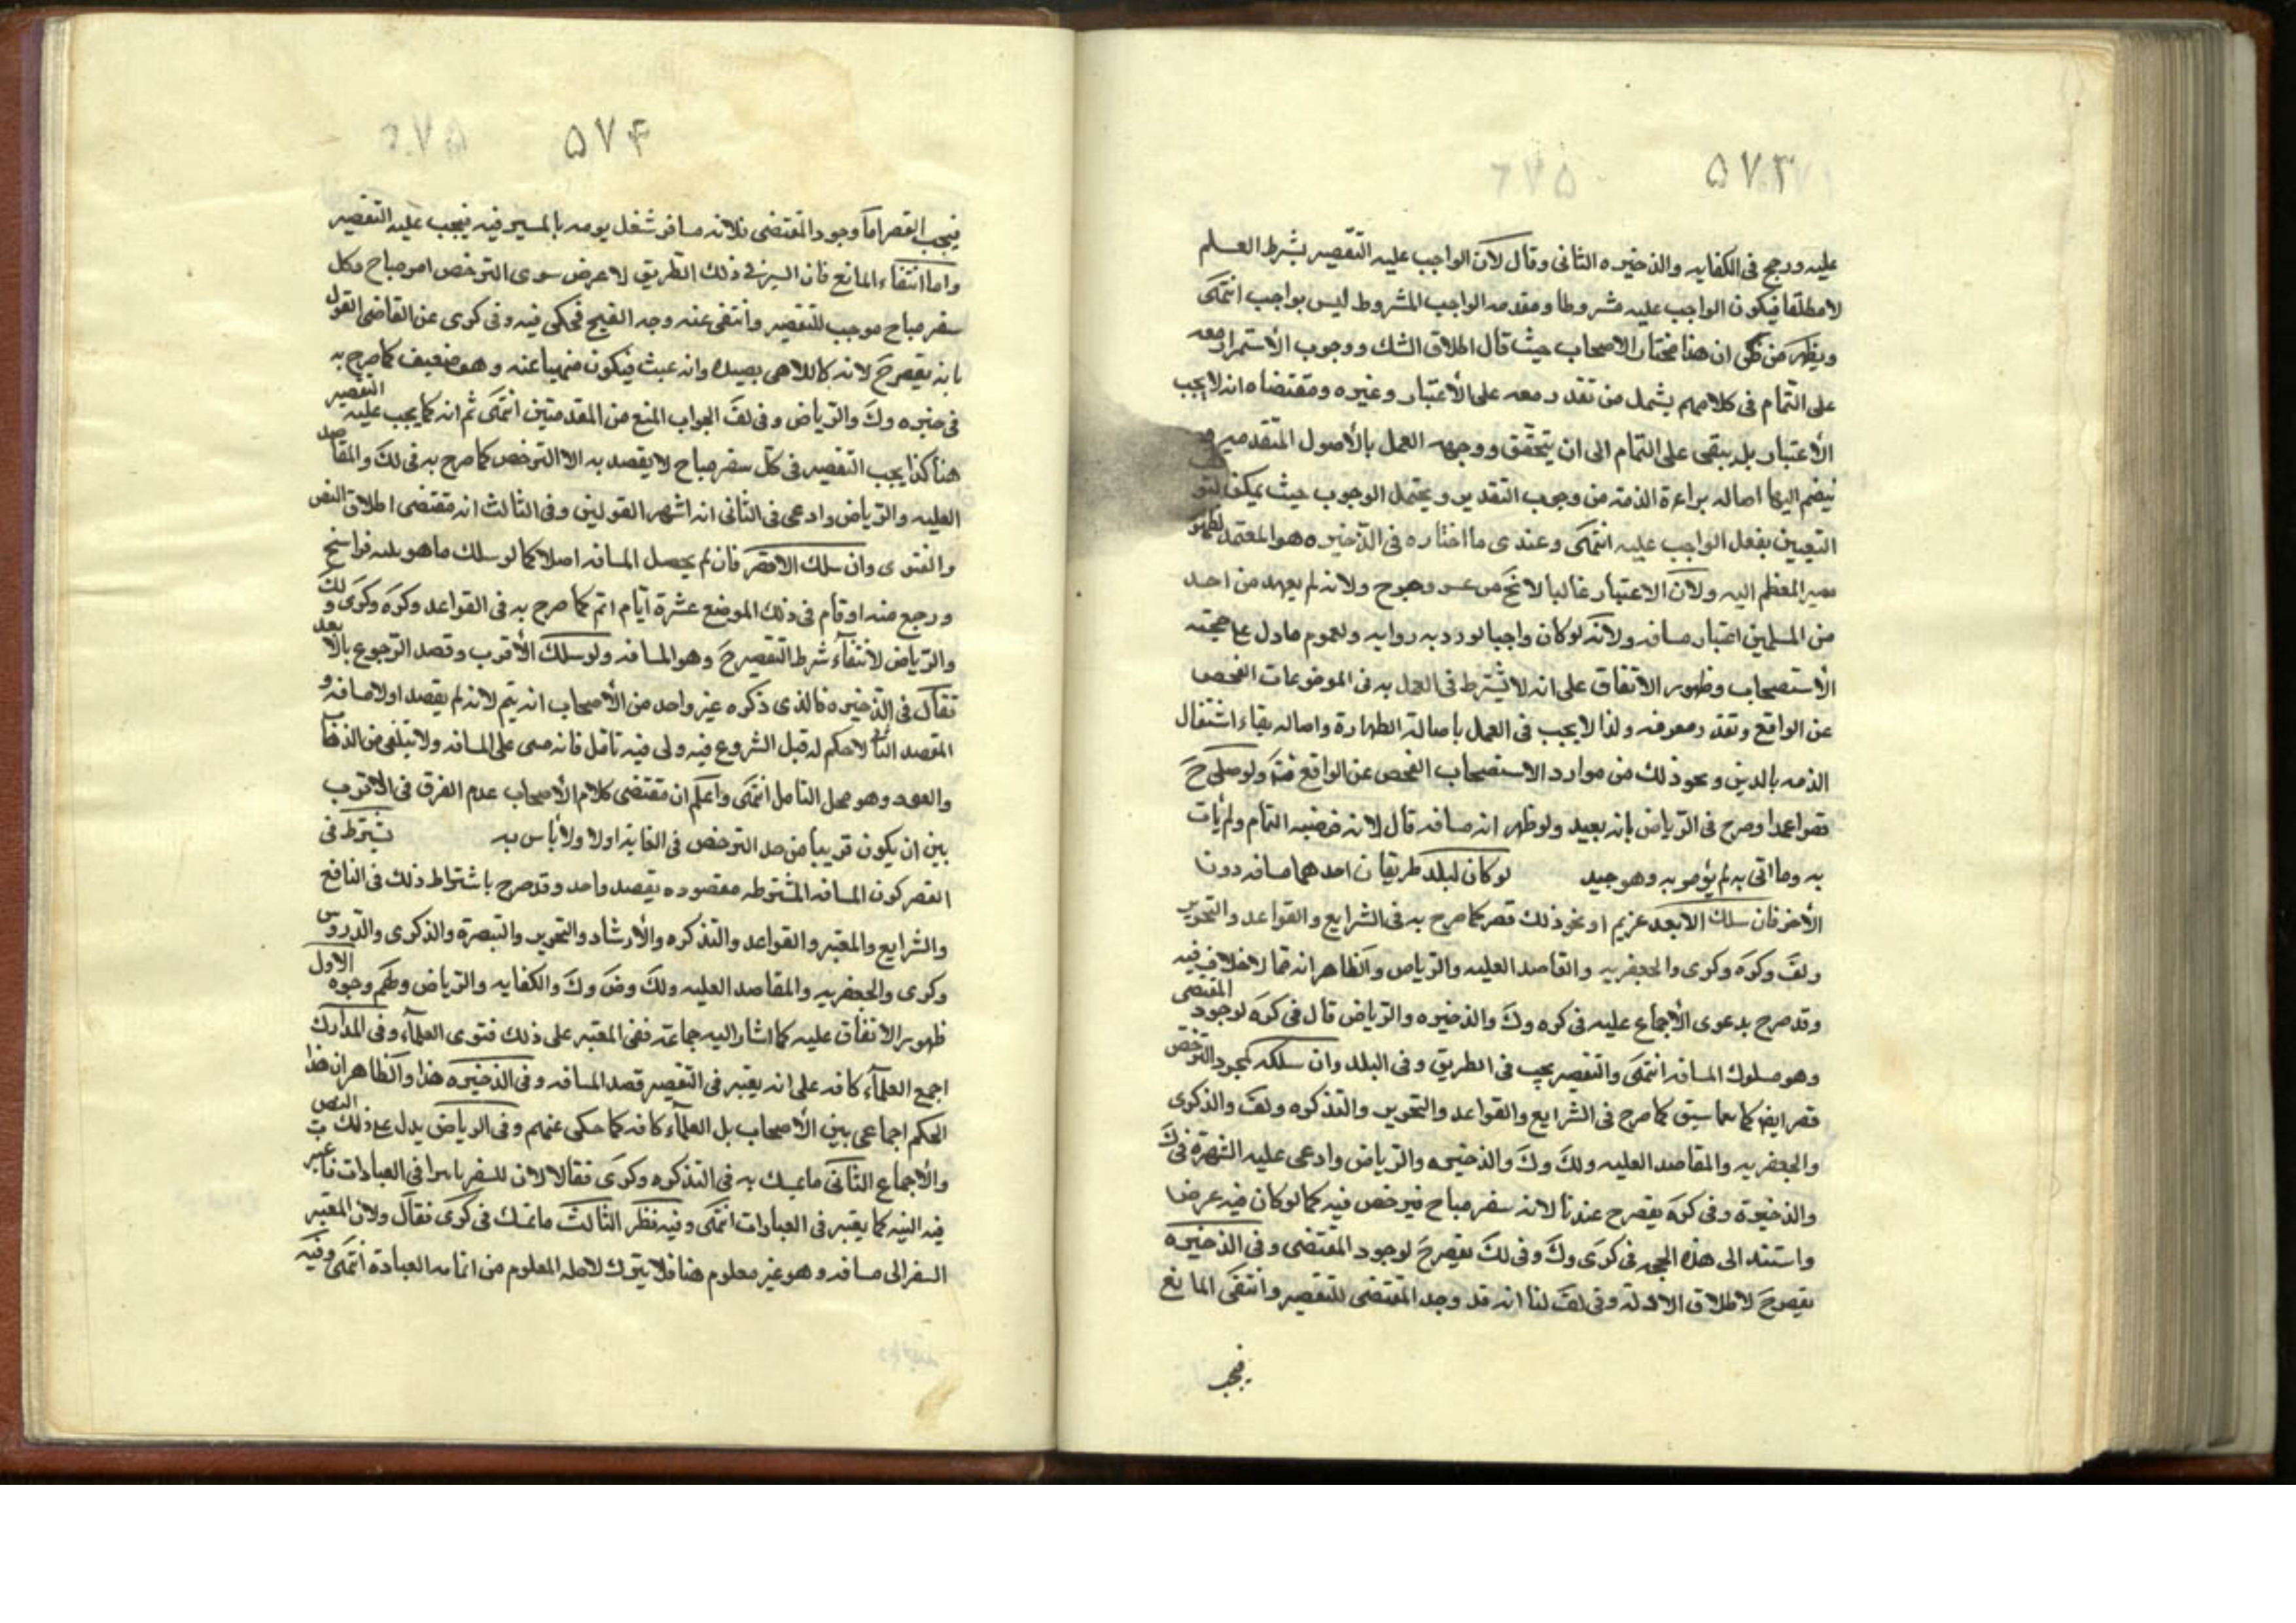 ۵۷۳
عليه ورجح فى الكفايه والذخيره الثانى وقال لان الواجب عليه التقصير بشرط العلم
لا مطلقا فيكون الواجب عليه مشروطا ومقدمه الواجب المشروط ليس بواجب انتهى
ويظهر من ان هذا مختار الاصحاب حيث قال اطلاق الشك ووجوب الأستمرار معه
على التمام فى كلامهم يشمل من تقدر معه على الأعتبار وغيره ومقتضاه انه لا يجب
الأعتبار بل يبقى على التمام الى ان يتحقق ووجهه العمل بالأصول المتقدمه
ينضم اليها اصاله براءة الذمه من وجوب التقدير ويحتمل الوجوب حيث يمكن
التعيين بفعل الواجب عليه انتهى وعندى ما اختاره فى الذخيره هو المعتمد لظهور
مصير المعظم اليه ولان الاعتبار غالبا لا يخ من عسر وحرج ولانه لم يعهد من احد
من المسلمين اعتبار مسافه ولانه لو كان واجبا لورد به روايه ولعموم ما دل على حجيه
الأستصحاب وظهور الاتفاق على انه لا يشترط فى العمل به فى الموضوعات الفحص
عن الواقع وتقدر معرفه ولذا لا يجب فى العمل باصالة الطهارة واصاله بقاء اشتغال
الذمه بالدين ونحو ذلك من موارد الاستصحاب الفحص عن الواقع فتم ولو صلى ح
قصرا عمدا وصرح فى الرياض بانه بعيد ولو ظهر انه مسافه قال لانه فرضه التمام ولم يأت
به وما اتى به لم يؤمر به وهو جيد لو كان لبلد طريقان احدهما مسافه دون
الأخر فان سلك الابعد عزيم او نحو ذلك قصر كما صرح به فى الشرايع والقواعد والتحرير
ولف وكره وكرى والجعفريه والمقاصد العليه والرياض والظاهر انه مما لا خلاف فيه
وقد صرح بدعوى الأجماع عليه فى كره وك والذخيره والرياض قال فى كره لوجود المقتضى
وهو سلوك المسافه انتهى والتقصير يجب فى الطريق وفى البلد وان سلكه لمجرد الترخص
قصر ايضا كما سبق كما صرح فى الشرايع والقواعد والتحرير والتذكره ولف والذكرى
والجعفريه والمقاصد العليه ولك وك والذخيره والرياض وادعى عليه الشهرة فى ك
والذخيرة وفى كره يقصر ح عندنا لانه سفر مباح فيرخص فيه كما لو كان فيه عرضا
واستند الى هذه الحجه فى كرى وك وفى لك يقصر ح لوجود المقتضى وفى الذخيره
يقصر ح لاطلاق الادلة وفى لف لنا انه قد وجد المقتضى للتقصير وانتفى المانع
فيجب
۵۷۴
فيجب القصر اما وجود المقتضى فلانه مسافر شغل يومه بالمسير فيه فيجب عليه التقصير
واما انتفاء المانع فان السير فى ذلك الطريق لا عرض سوى الترخص امر مباح وكل
سفر مباح موجب للتقصير وانتفى عنه وجه القبح فحكى فيه وفى كرى عن القاضى القول
بانه يقصر ح لانه كاللاهى بصيده وانه عبث فيكون منهيا عنه وهو ضعيف كما صرح به
فى خيره وك والرياض وفى لف الجواب المنع من المقدمتين انتهى ثم انه كما يجب عليه التقصير
هنا كذا يجب التقصير فى كل سفر مباح لا يقصد به الا الترخص كما صرح به فى لك والمقاصد
العليه والرياض وادعى فى الثانى انه اشهر القولين وفى الثالث انه مقتضى اطلاق النص
والفتوى وان سلك الاقصر فان لم يحصل المسافه اصلا كما لو سلك ما هو ثلثه فراسخ
ورجع منه او قام فى ذلك الموضع عشرة ايام اتم كما صرح به فى القواعد وكره وكرى ولك
والرياض لانتفاء شرط التقصير ح وهو المسافه ولو سلك الأقرب وقصد الرجوع بالابعد
فقال فى الذخيره فالذى ذكره غير واحد من الأصحاب انه يتم لانه لم يقصد اولا مسافه و
المقصد الثانى لا حكم له قبل الشروع فيه ولى فيه تامل فانه مسى على المسافه ولا تبلفى من الذهاب
والعود وهو محل التامل انتهى واعلم ان مقتضى كلام الأصحاب عدم الفرق فى الاقرب
بين ان يكون قريبا من حد الترخص فى الغايه اولا ولا بأس به يشترط فى
القصر كون المسافه المشترطه مقصوده بقصد واحد وقد صرح باشتراط ذلك فى النافع
والشرايع والمعتبر والقواعد والتذكره والأرشاد والتحرير والتبصرة والذكرى والدروس
وكرى والجعفريه والمقاصد العليه ولك وض وك والكفايه والرياض ولهم وجوه الاول
ظهور الاتفاق عليه كما اشار اليه جماعة ففى المعتبر على ذلك فتوى العلماء وفى المدارك
اجمع العلماء كافه على انه يعتبر فى التقصير قصد المسافه وفى الذخيره هذا والظاهر ان هذا
الحكم اجماعى بين الأصحاب بل العلماء كافه كما حكى عنهم وفى الرياض يدل على ذلك النص
والأجماع الثانى ما تمسك به فى التذكره وكرى فقالا لان للسفر تاثيرا فى العبادات فاعتبر
فيه النيه كما يعتبر فى العبادات انتهى وفيه نظر الثالث ما تمسك فى كرى فقال ولان المعتبر
السفر الى مسافه وهو غير معلوم هنا فلا يترك لاجله المعلوم من اتمام العبادة انتهى وفيه